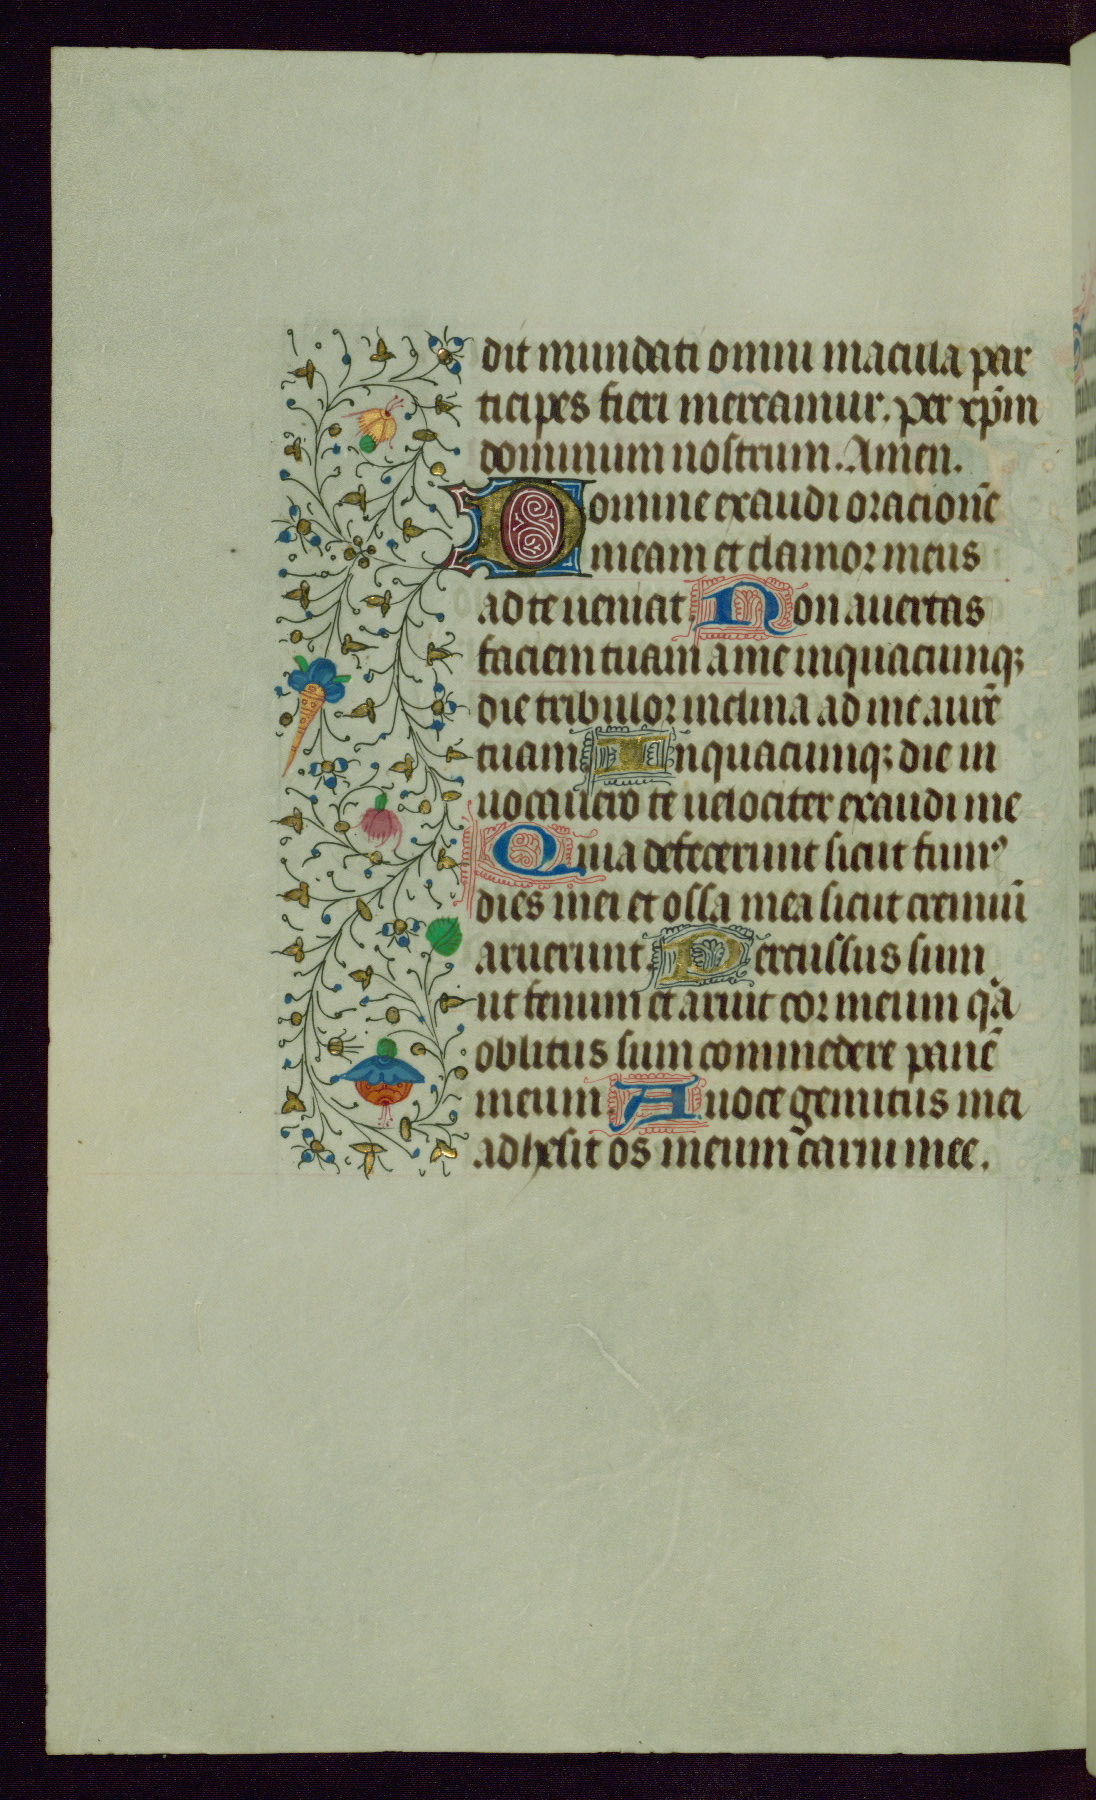 dit mundati omni macula par
ticipes fieri mereamur. per xp̄m
dominum nostrum. Amen.
Domine exaudi oracionē
meam et clamor meus
ad te ueniat Non auertas
faciem tuam a me inquacumq;
die tribulor inclina ad me aurē
tuam Inquacumq; die in
uocauero te uelociter exaudi me
Quia defecerunt sicut fumꝰ
dies mei et ossa mea sicut cremiū
aruerunt Percussus sum
ut fenum et aruit cor meum q̄a
oblitus sum commedere panē
meum A uoce gemitus mei
adhesit os meum carni mee.